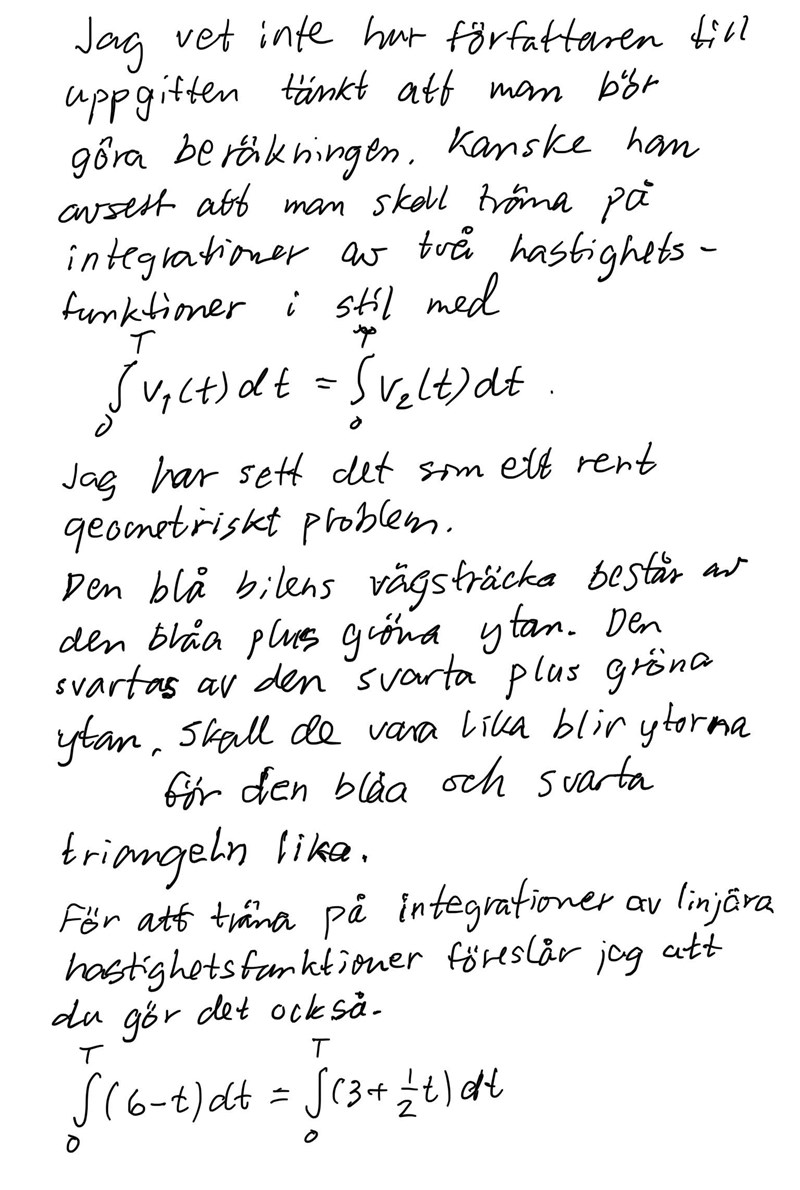 Jag vet inte hur författaren till
uppgiften tänkt att man bör
göra beräkningen. Kanske han
avsett att man skall träna på
integrationer av två hastighets-
funktioner i stil med
∫₀ᵀ v₁(t) dt = ∫₀ᵀ v₂(t) dt .
Jag har sett det som ett rent
geometriskt problem.
Den blå bilens vägsträcka består av
den blåa plus gröna ytan. Den
svartas av den svarta plus gröna
ytan. Skall de vara lika blir ytorna
för den blåa och svarta
triangeln lika.
För att träna på integrationer av linjära
hastighetsfunktioner föreslår jag att
du gör det också.
∫₀ᵀ (6-t) dt = ∫₀ᵀ (3+½t) dt